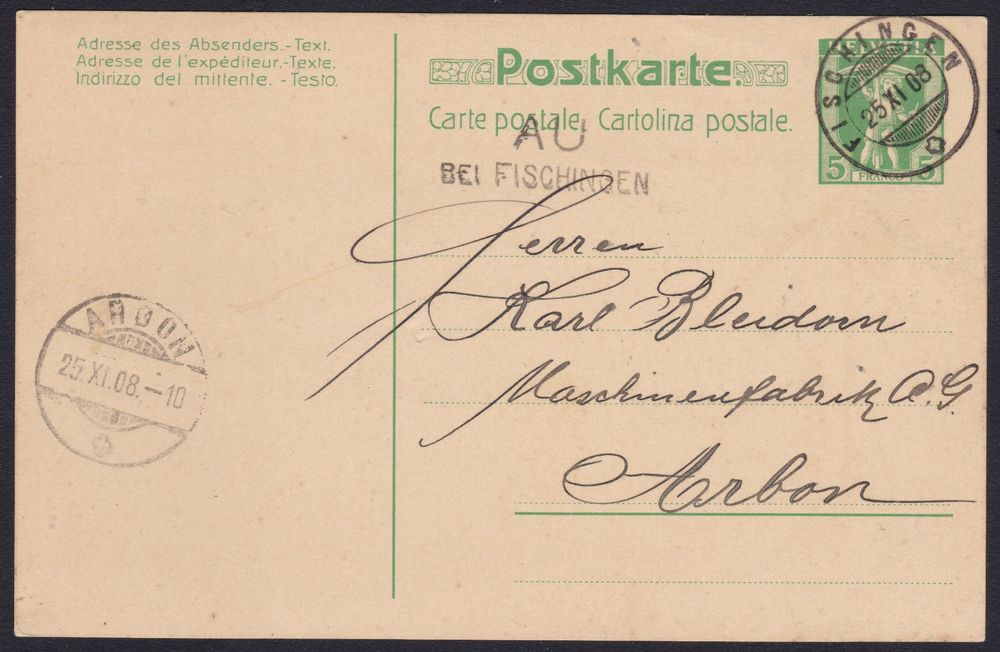 Adresse des Absenders.-Text.
Adresse de l'expéditeur.-Texte.
Indirizzo del mittente.-Testo.
Postkarte.
Carte postale. Cartolina postale.
FISCHINGEN
25 XI 08
5 FRANCO 5
AU
BEI FISCHINGEN
Herren
Karl Bleidorn
Maschinenfabrik A.G.
Arbon
ARBON
25.XI.08.-10